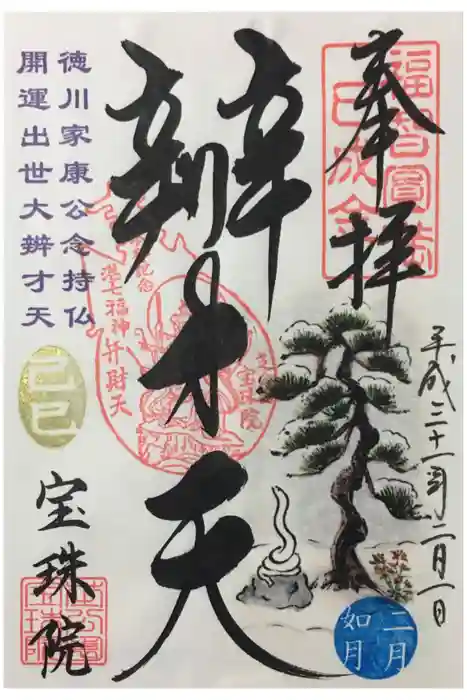 奉拝
福智圓満
巳成金
平成三十一年二月一日
辨才天
港七福神弁財天
宝珠院
二月
如月
徳川家康公念持仏
開運出世大辨才天
己巳
宝珠院